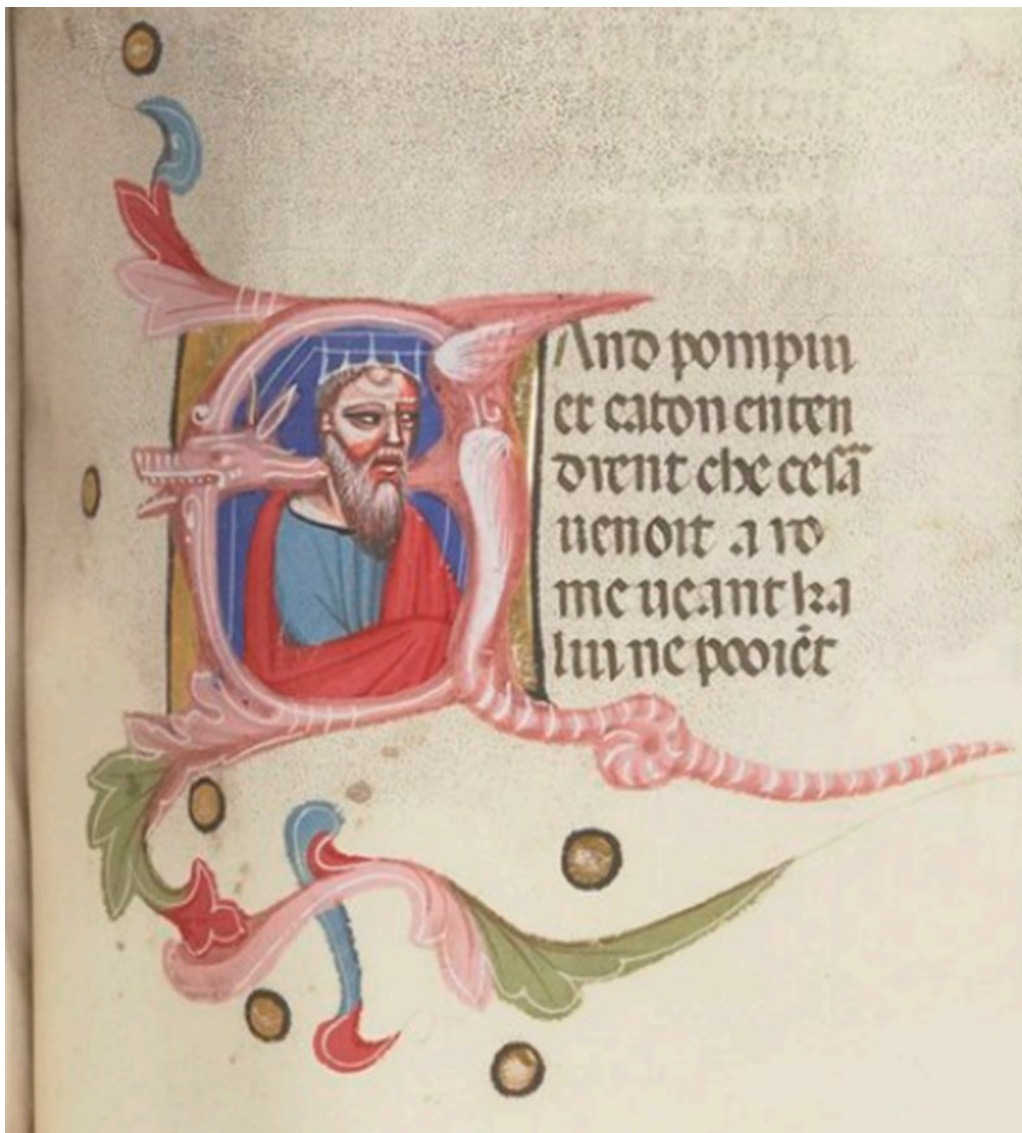 QAnd pompiu
et caton enten
dirent che cesā
uenoit .a ro
me ueant ka
lui ne pooiēt